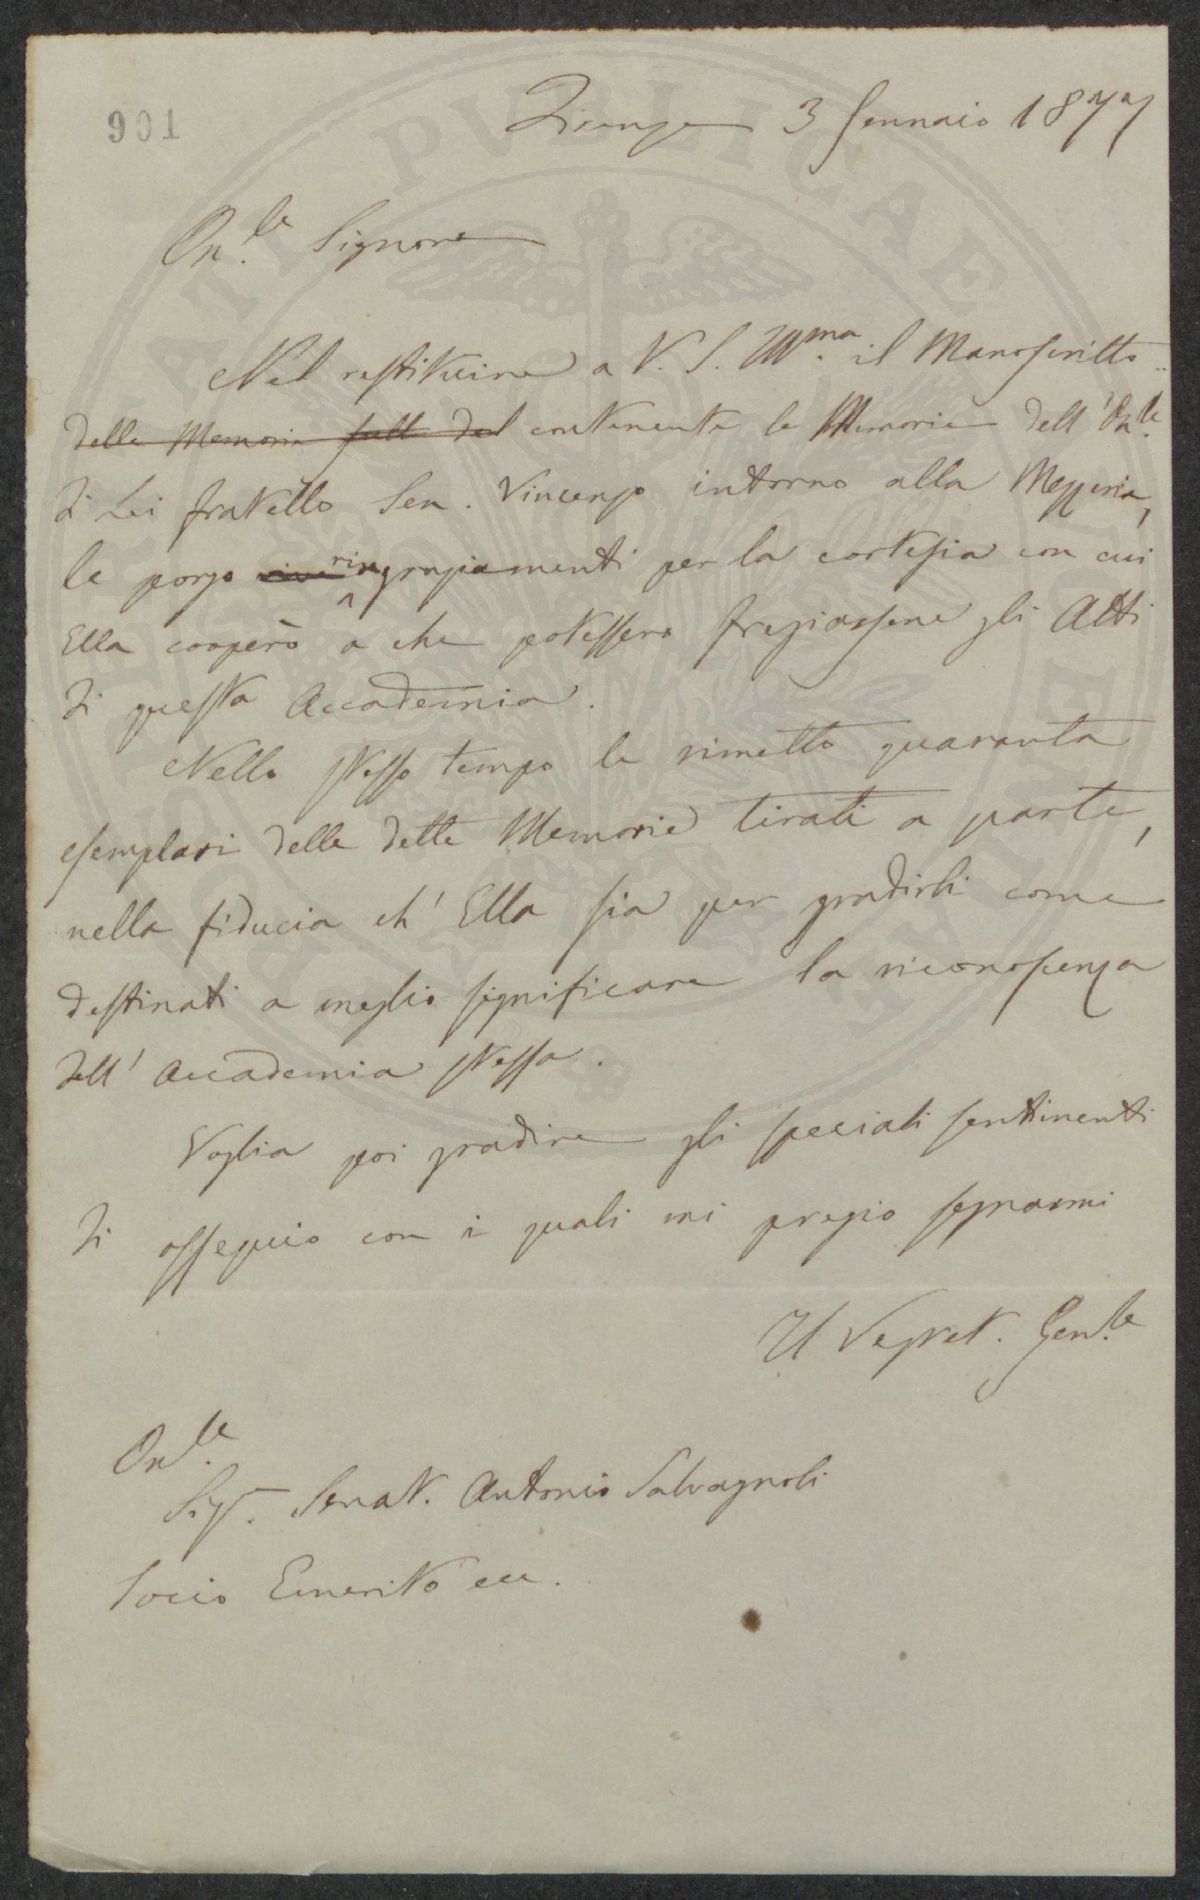 901
Firenze 3 Gennaio 1877
On.le Signore
Nel restituire a V. S. Ill.ma il Manoscritto
delle Memorie sull del contenente le Memorie dell'On.le
di Lei fratello Sen. Vincenzo intorno alla Mezzeria,
le porgo ringraziamenti per la cortesia con cui
Ella cooperò a che potessero fregiarsene gli Atti
di questa Accademia.
Nello stesso tempo le rimetto quaranta
esemplari delle dette Memorie tirati a parte,
nella fiducia ch'Ella sia per gradirli come
destinati a meglio significare la riconoscenza
dell'Accademia stessa.
Voglia poi gradire gli speciali sentimenti
di ossequio con i quali mi pregio segnarmi
Il Segret. Gen.le
On.le
Sig. Senat. Antonio Salvagnoli
Socio Emerito ecc.